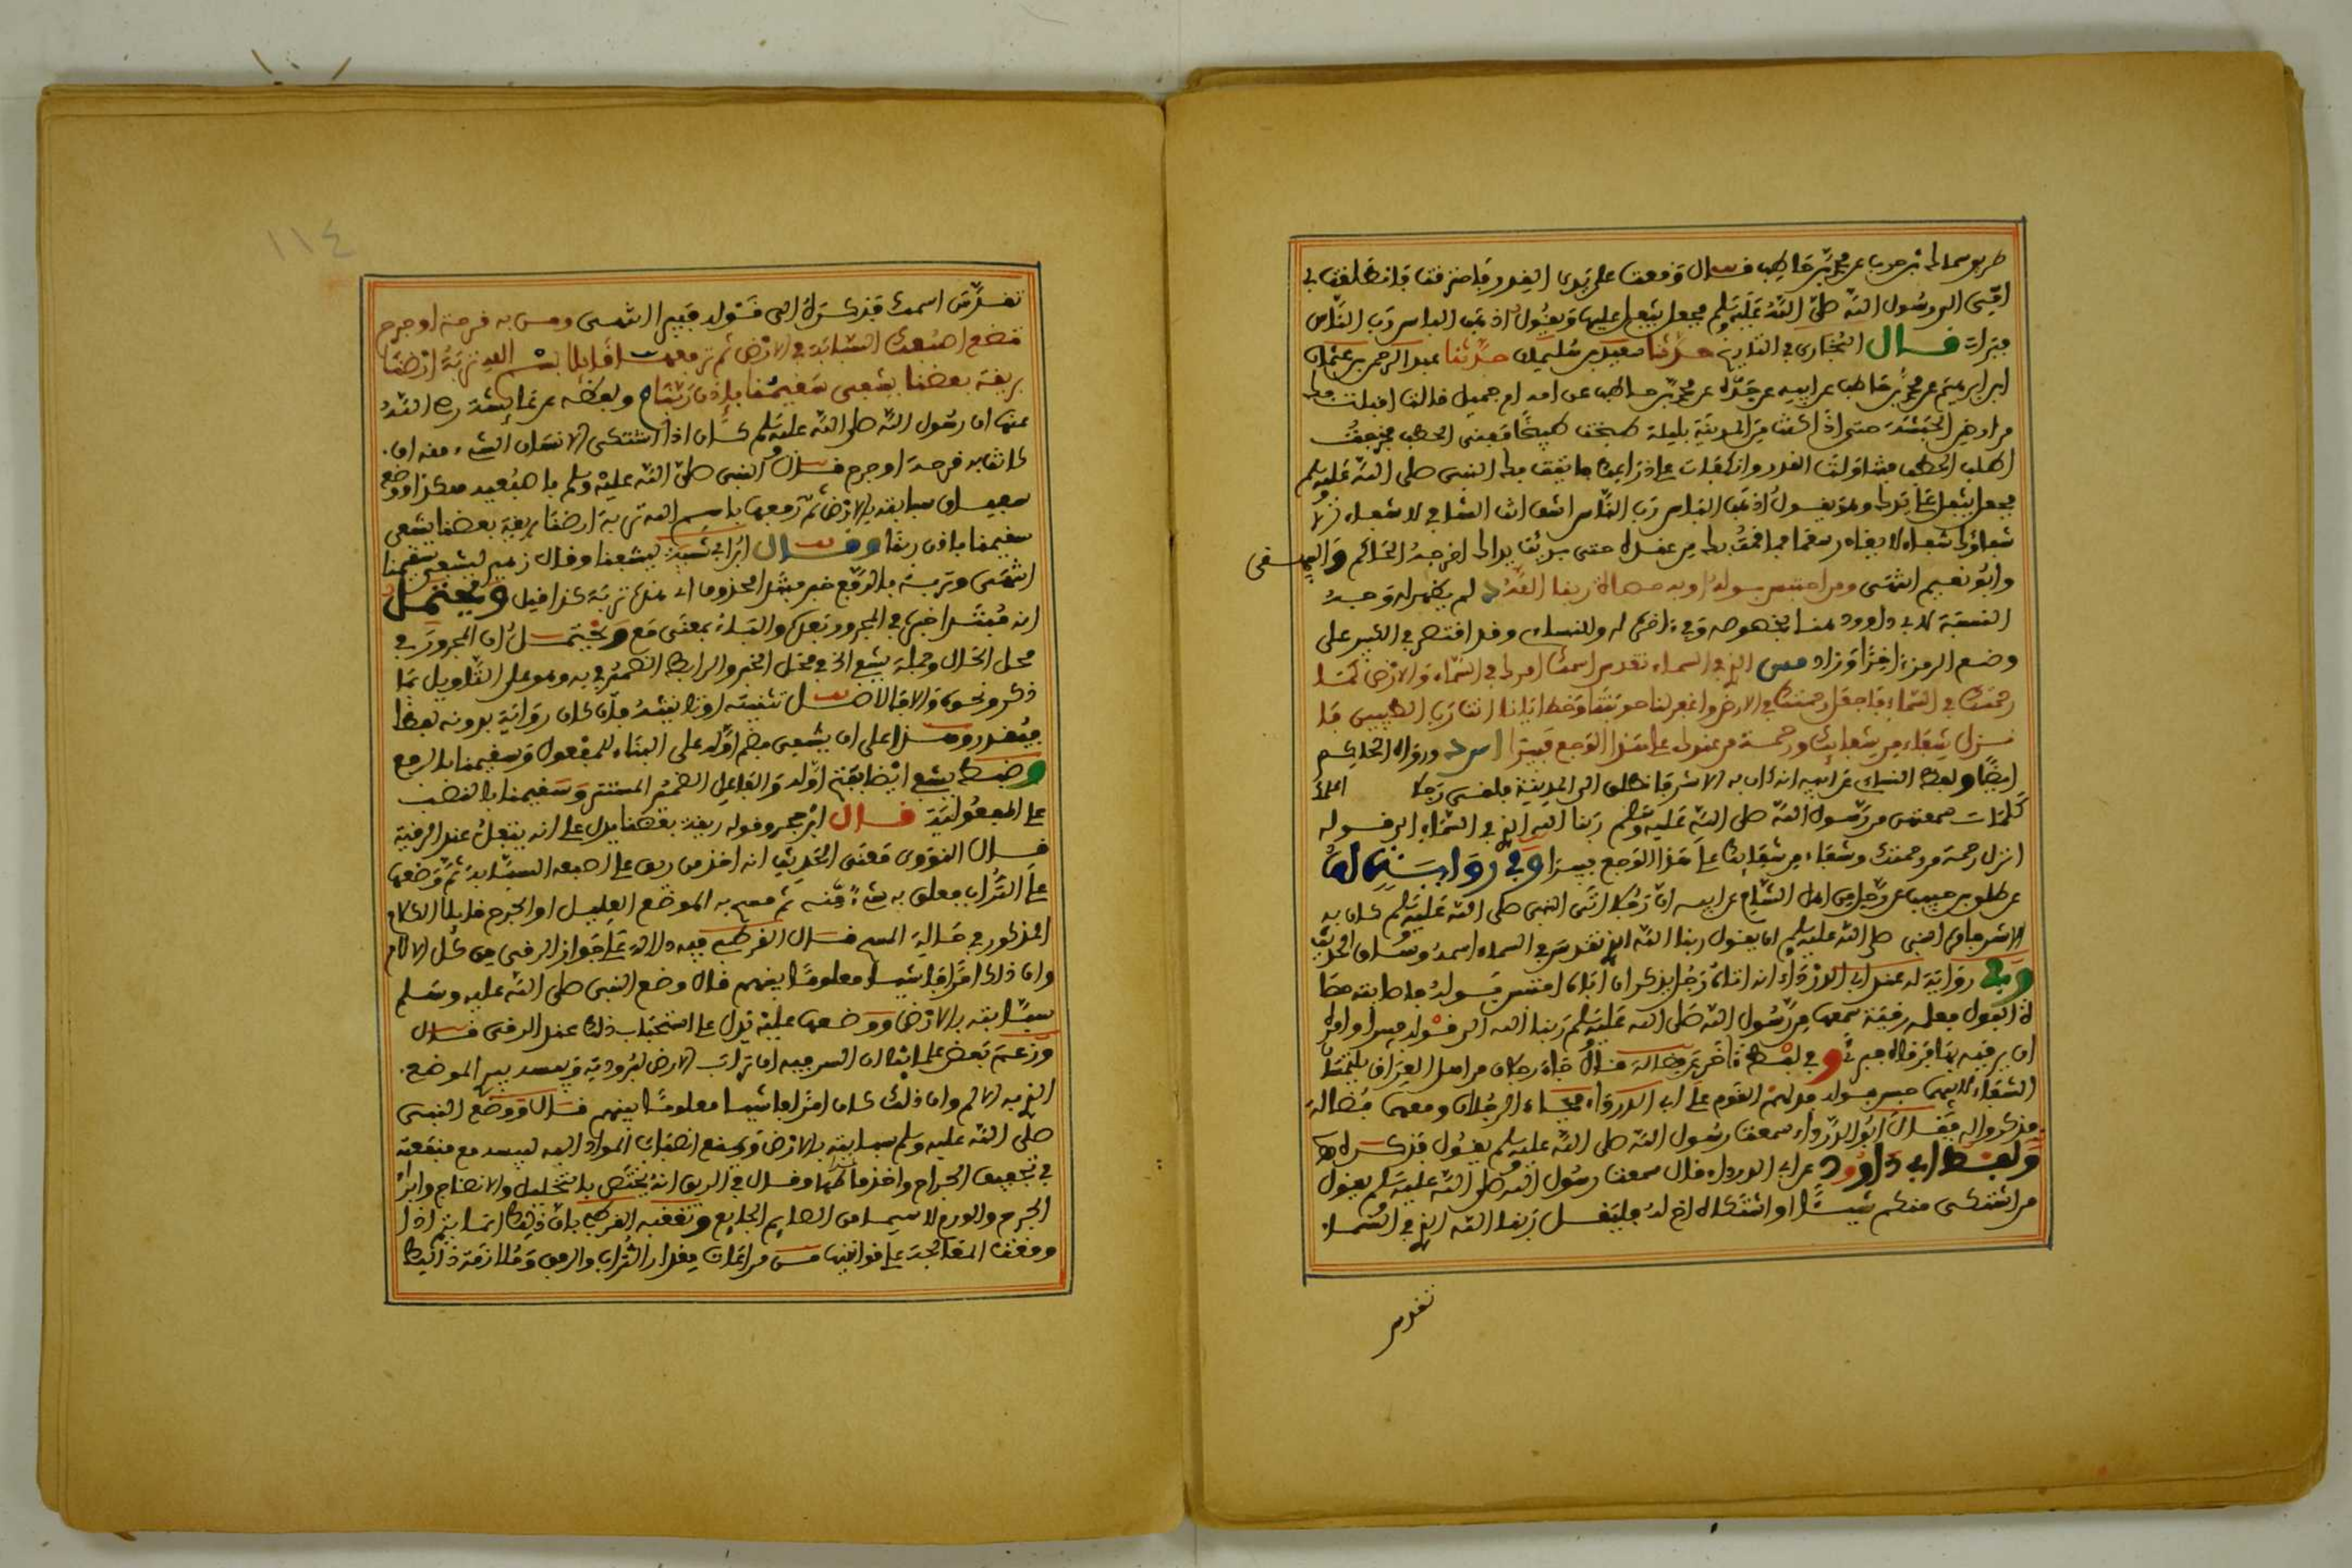 طريق سماك بن حرب عن محمد بن حاطب قال وقعت على يدي القدر فاحترقت فانطلقت بي
امي الى رسول الله صلى الله عليه وسلم فجعل يتفل عليها ويقول اذهب الباس رب الناس
فبرات قال البخاري في التاريخ حدثنا سعيد بن سليمان حدثنا عبد الرحمن بن عثمان
ابن ابراهيم عن محمد بن حاطب عن ابيه عن جده عن محمد بن حاطب عن امه ام جميل قالت اقبلت بك
من ارض الحبشة حتى اذا كنت من المدينة بليلة طبخت طبيخا ففني الحطب فخرجت
اطلب الحطب فتناولت القدر وانكفات على ذراعك فاتيت بك النبي صلى الله عليه وسلم
فجعل يتفل على يدك وهو يقول اذهب الباس رب الناس اشف انت الشافي لا شفاء الا
شفاؤك شفاء لا يغادر سقما فما قمت بك من عنده حتى برئت يداك اخرجه الحاكم والبيهقي
وابو نعيم انتهى ومن احتبس بوله او به حصاة ربنا الله د لم يظهر له وجه
النسبة لابي داوود هنا بخصوصه وفي اخرى له وللنساءي وقد اقتصر في الكبير على
وضع الرمز اخرا وزاد مس الذي في السماء تقدس اسمك امرك في السماء والارض كما
رحمتك في السماء فاجعل رحمتك في الارض واغفر لنا حوبنا وخطايانا انت رب الطيبين فا
نزل شفاء من شفائك ورحمة من عندك على هذا الوجع فيبرا س د ورواه الحاكم
ايضا ولفظ النساءي عن ابيه انه كان به الاسر فانطلق الى المدينة فلقي رجلا
كلمات سمعتهن من رسول الله صلى الله عليه وسلم ربنا الله الذي في السماء الى قوله
انزل رحمة من رحمتك وشفاء من شفائك على هذا الوجع فيبرا وفي رواية
عن طلق بن حبيب عن رجل من اهل الشام عن ابيه ان رجلا اتى النبي صلى الله عليه وسلم كان به
الاسر فامره النبي صلى الله عليه وسلم ان يقول ربنا الله الذي تقدس في السماء اسمه وساق الحديث
وفي رواية له عند ابي الدرداء انه اتاه رجل يذكر ان اباه احتبس بوله فاصابته حصا
ة البول فعلمه رقية سمعها من رسول الله صلى الله عليه وسلم ربنا الله الى قوله فيبرا وامره
ان يرقيه بها فرقاه فبرئ وفي لفظ اخر عن فضالة قال جاء رجلان من اهل العراق يلتمسان
الشفاء لابيهما حبس بوله فدلهم القوم على ابي الدرداء فجاء الرجلان ومعهما فضالة
فذكروا له فقال ابو الدرداء سمعت رسول الله صلى الله عليه وسلم يقول فذكره
ولفظ ابي داوود عن ابي الدرداء قال سمعت رسول الله صلى الله عليه وسلم يقول
من اشتكى منكم شيئا او اشتكاه اخ له فليقل ربنا الله الذي في السماء
تقدس
١١٤
تقدس اسمك فذكره الى قوله فيبرا انتهى ومن به قرحة او جرح
فضع اصبعك السبابة في الارض ثم ترفعها قائلا بسم الله تربة ارضنا
بريقة بعضنا يشفي سقيمنا باذن ربنا م ولفظه عن عائشة رضي الله
عنها ان رسول الله صلى الله عليه وسلم كان اذا اشتكى الانسان الشيء منه او
كانت به قرحة او جرح قال النبي صلى الله عليه وسلم باصبعه هكذا ووضع
سفيان سبابته بالارض ثم رفعها باسم الله تربة ارضنا بريقة بعضنا يشفى
سقيمنا باذن ربنا وقال ابن ابي شيبة يشفى وقال زهير ليشفى سقيمنا
انتهى وتربة بالرفع خبر مبتدا محذوف اي هذه تربة كذا قيل ويحتمل
انه مبتدا خبره في المجرور بعده والباء بمعنى مع ويحتمل ان المجرور في
محل الحال وجملة يشفى الخ في محل الخبر والرابط الضمير في به وهو على التاويل بما
ذكر ونحوه والا فالاصل تثنيته او تانيثه فان كان رواية بدونه لفظا
فيقدر وهذا على ان يشفى بضم اوله على البناء للمفعول وسقيمنا بالرفع
وضبط يشفي ايضا بفتح اوله والفاعل الضمير المستتر وسقيمنا بالنصب
على المفعولية قال ابن حجر وقوله ريقة بعضنا يدل على انه يتفل عند الرقية
قال النووي معنى الحديث انه اخذ من ريقه على اصبعه السبابة ثم وضعها
على التراب فعلق به شيء منه ثم مسح به الموضع العليل او الجرح قائلا الكلام
المذكور في حالة المسح قال القرطبي فيه دلالة على جواز الرقى من كل الالام
وان ذلك امرا فاشيا معلوما بينهم قال وضع النبي صلى الله عليه وسلم
سبابته بالارض ووضعها عليه يدل على استحباب ذلك عند الرقى قال
وزعم بعض علمائنا ان السر فيه ان تراب الارض لبرودته ويبسه يبرئ الموضع
الذي به الالم وان ذلك كان امرا فاشيا معلوما بينهم قال ووضع النبي
صلى الله عليه وسلم سبابته بالارض ويمنع انصباب المواد اليه ليبسه مع منفعته
في تجفيف الجراح واندمالها وقال في الريق انه يختص بالتحليل والانضاج وابراء
الجرح والورم لا سيما من الصائم الجائع وتعقبه القرطبي بان ذلك انما يتم اذا
وقعت المعالجة على قوانينها من مراعات مقدار التراب والريق وملازمة ذلك